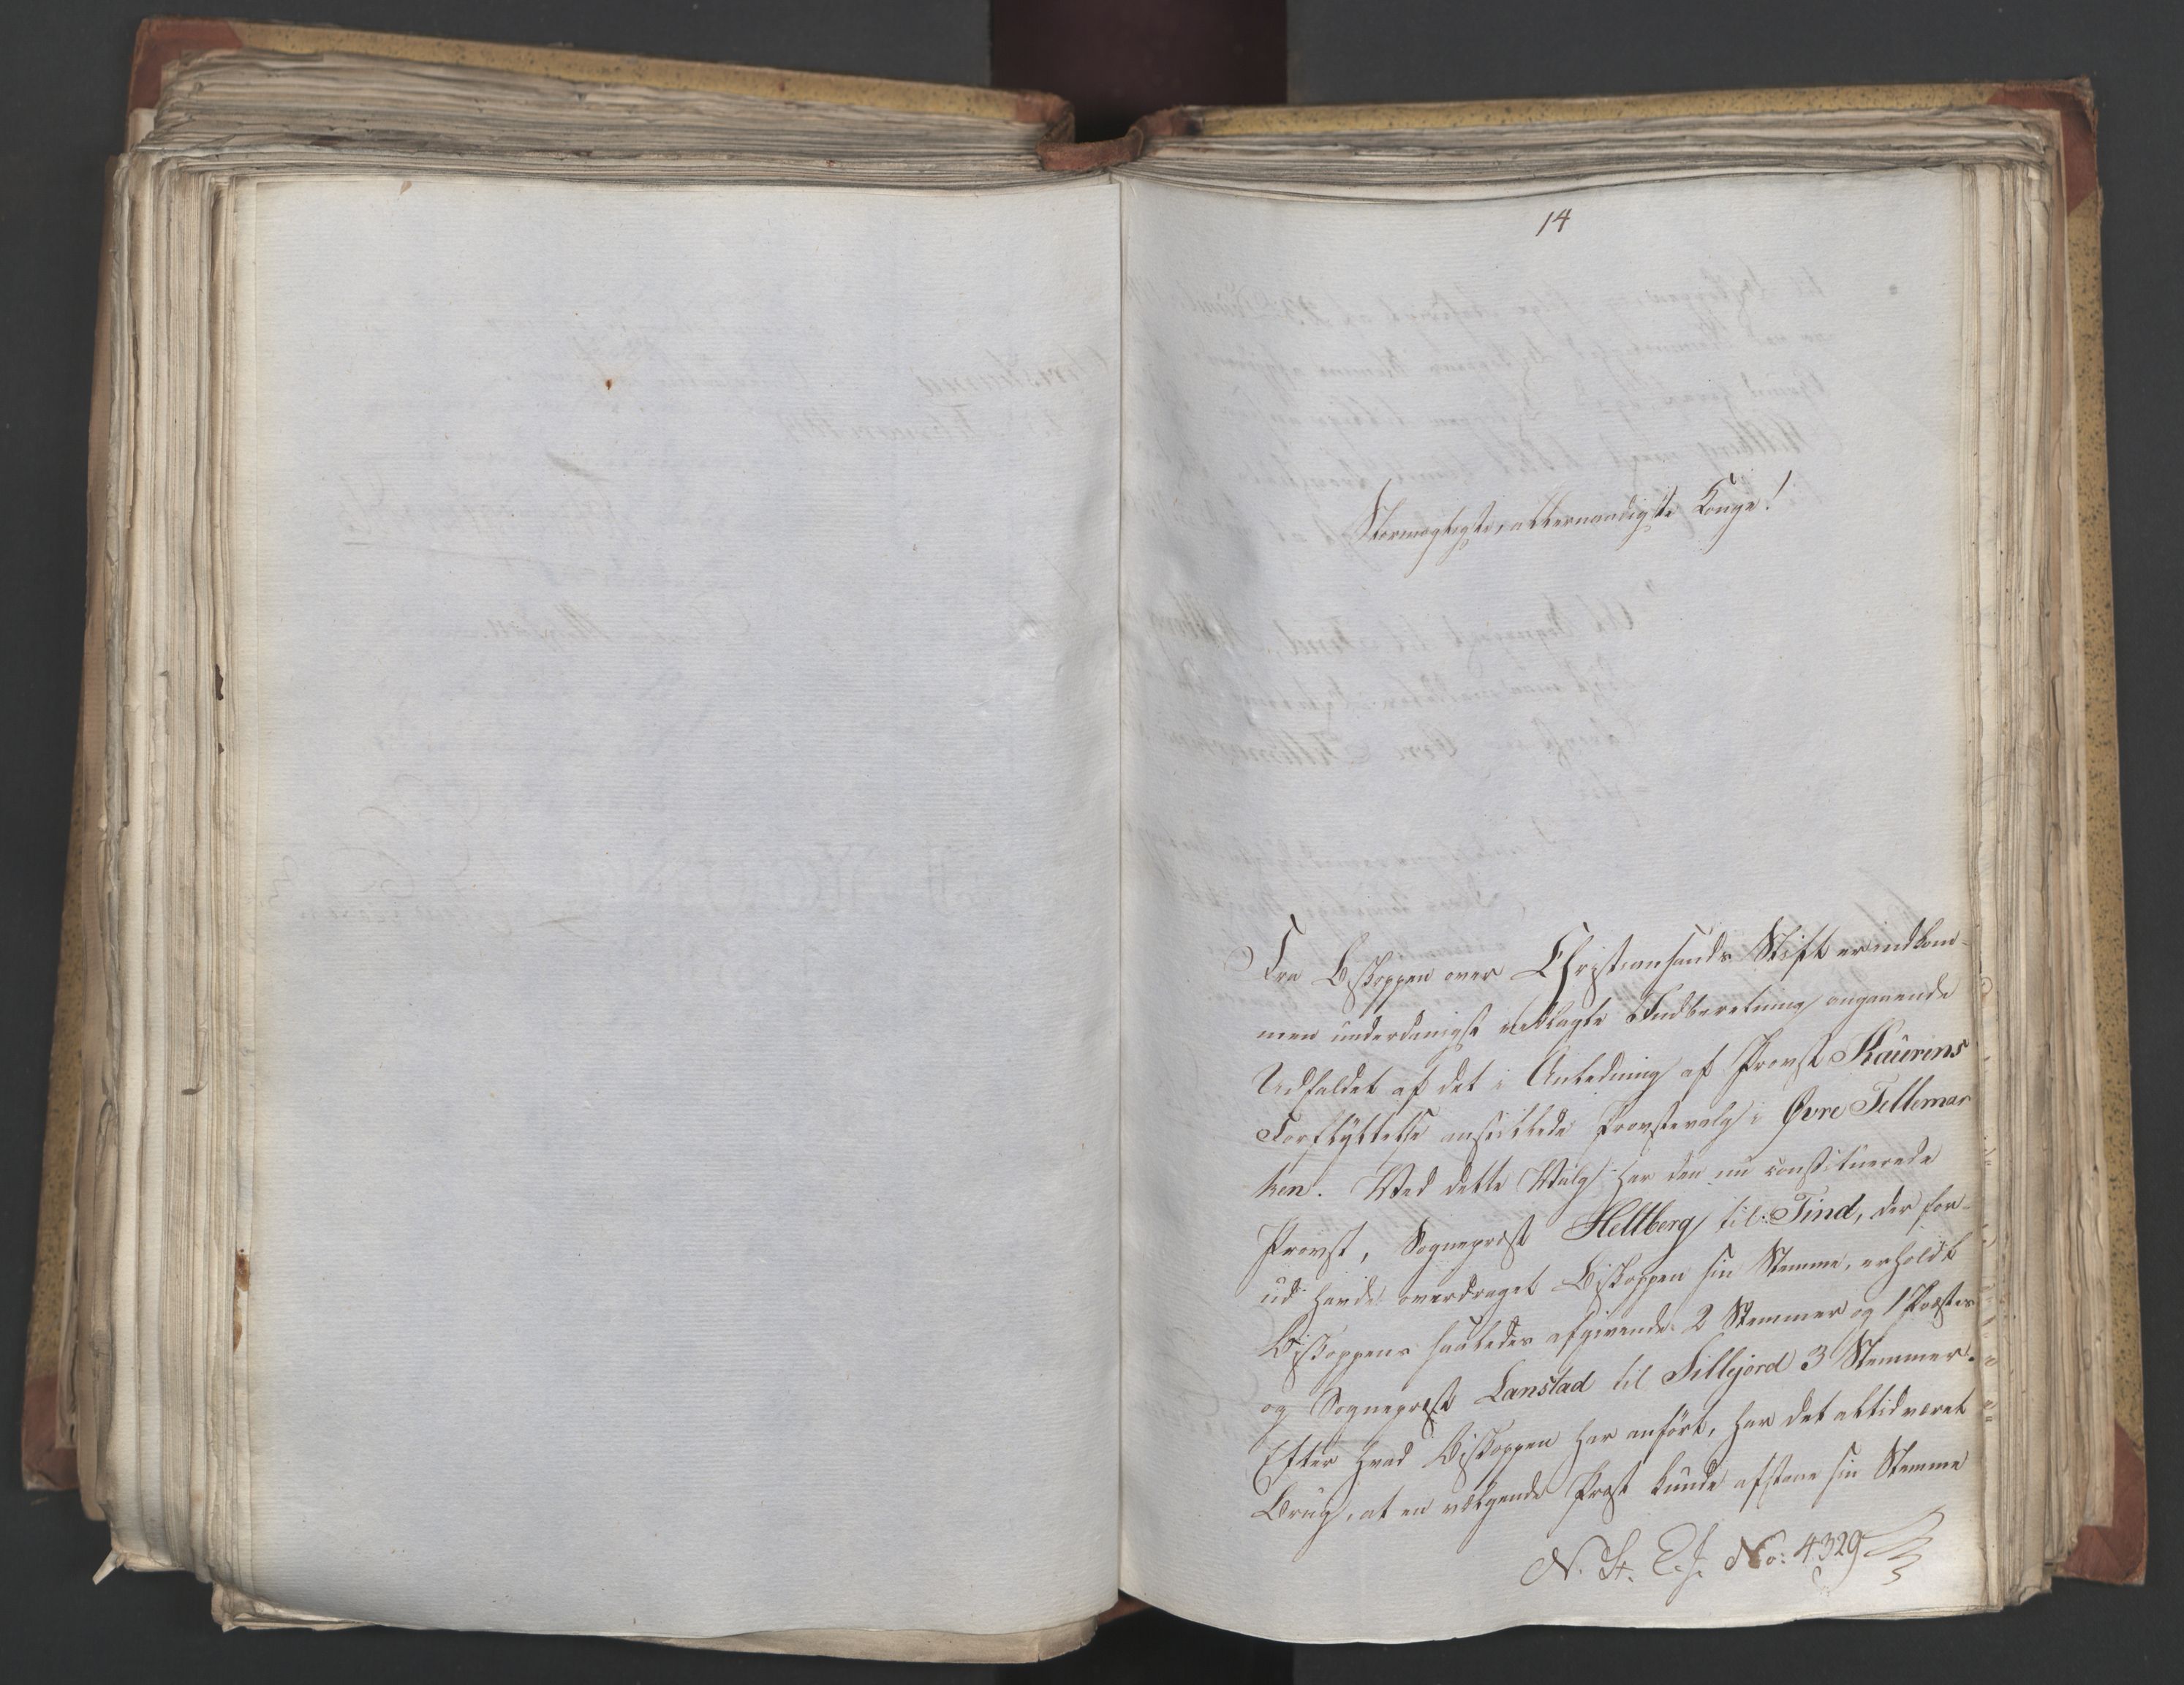 14
Stormægtigste, allernaadigste Konge!
Fra Biskoppen over Christiansands Stift er indkom-
men underdanigst vedlagte Indberetning angaaende
Udfaldet af det i Anledning af Provst Kaurins
Forflyttelse anstillede Provstevalg i Øvre Tellemar
ken. Ved dette Valg har den nu constituerede
Provst, Sognepræst Heltberg til Tind, der for-
ud havde overdraget Biskoppen sin Stemme, erholdt
Biskoppens saaledes afgivende 2 Stemmer og 1 Præstes
og Sognepræst Lanstad til Sillejord 3 Stemmer.
Efter hvad Biskoppen har anført, har det altid været
Brug, at en vælgende Præst kunde afstaae sin Stemme
N. St. E. J. No: 4329